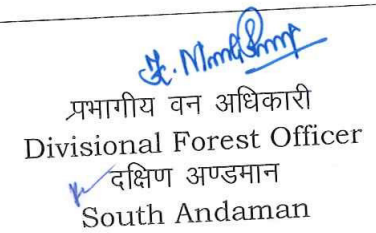 प्रभागीय वन अधिकारी
Divisional Forest Officer
दक्षिण अण्डमान
South Andaman